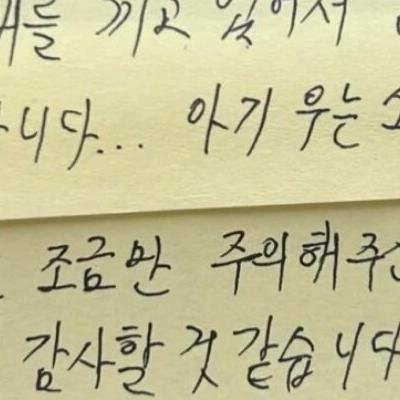 를 끼고 있어서
니다... 아기 우는 소
조금만 주의해주
감사할 것 같습니다